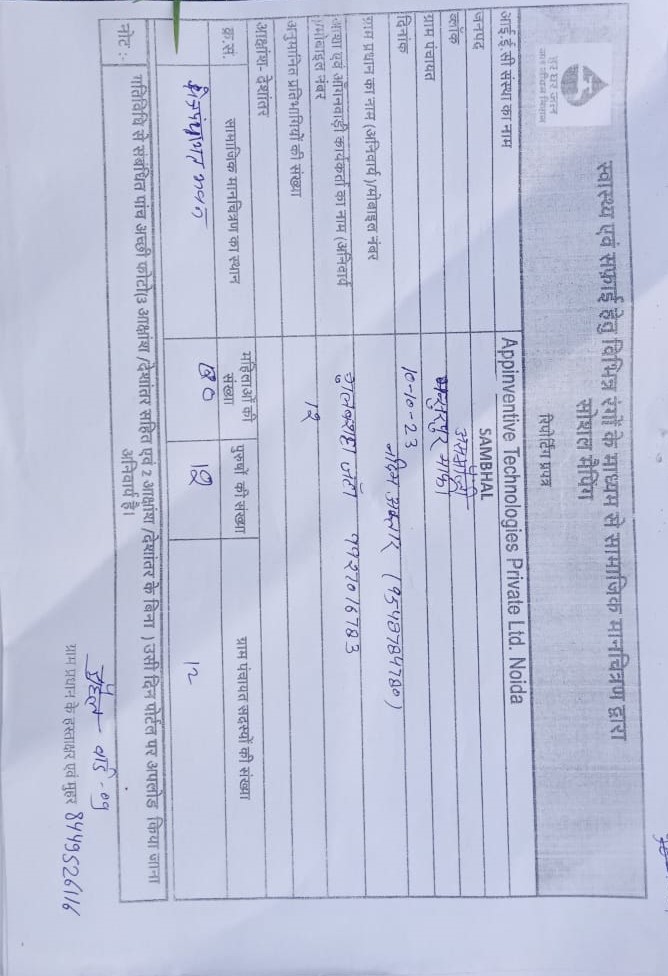 हर घर जल
जल जीवन मिशन
स्वास्थ्य एवं सफ़ाई हेतु विभिन्न रंगों के माध्यम से सामाजिक मानचित्रण द्वारा
सोशल मैपिंग
रिपोर्टिंग प्रपत्र
आई.ई.सी संस्था का नाम Appinventive Technologies Private Ltd. Noida
जनपद SAMBHAL
ब्लॉक
ग्राम पंचायत
दिनांक 10-10-23
ग्राम प्रधान का नाम (अनिवार्य )/मोबाइल नंबर (9548784780)
आशा एवं आँगनवाड़ी कार्यकर्ता का नाम (अनिवार्य )/मोबाइल नंबर 9927016783
अनुमानित प्रतिभागियों की संख्या 12
आक्षांश- देशांतर
क्र.सं. सामाजिक मानचित्रण का स्थान महिलाओं की संख्या पुरुषों की संख्या ग्राम पंचायत सदस्यों की संख्या
12 12
नोट :- गतिविधि से संबंधित पांच अच्छी फोटो(3 आक्षांश /देशांतर सहित एवं 2 आक्षांश /देशांतर के बिना ) उसी दिन पोर्टल पर अपलोड किया जाना
अनिवार्य है।
ग्राम प्रधान के हस्ताक्षर एवं मुहर 8449526116